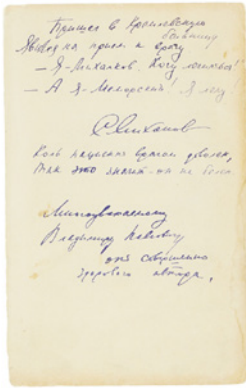 Пришел в Кремлевскую
больницу
Явился на прием к врачу
– Я – Михалков. Хочу лечиться!
– А я – Моморский! Я лечу!
С Михалков
Коль пациент врачом доволен,
Так это значит – он не болен
Многоуважаемому
Владимиру
от совершенно
здорового автора.